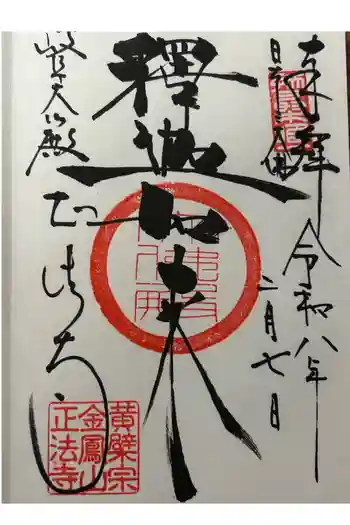 奉拝 令和八年
二月七日
日本三大佛
釋迦如来
岐阜大仏殿
正法寺
黄檗宗
金鳳山
正法寺